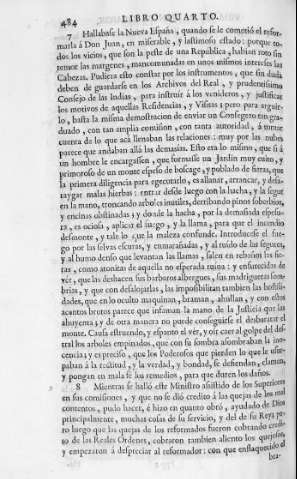 484 LIBRO QUARTO.
7 Hallabase la Nueva España, quando se le cometió el refor-
marla á Don Juan, en miserable, y lastimoso estado: porque to-
dos los vicios, que son la peste de una Republica, habian roto sin
temor las margenes, mancomunadas en unos mismos interéses las
Cabezas. Pudiera esto constar por los instrumentos, que sin duda
deben de guardarse en los Archivos del Real, y prudentissimo
Consejo de las Indias, para instruir á los venideros, y justificar
los motivos de aquellas Residencias, y Visitas; pero para arguir-
lo, basta la misma demostracion de enviar un Consegero tan gra-
duado, con tan amplia comision, con tanta autoridad, á tomar
cuenta de lo que acá llenaban las relaciones: muy por las nubes
parece que andaban allá las demasías. Esto era lo mismo, que si á
un hombre le encargassen, que formasse un Jardin muy culto, y
primoroso de un monte espeso de boscage, y poblado de fieras, que
la primera diligencia para egecutarlo, es allanar, arrancar, y desa-
raygar malas hierbas: entrar desde luego con la hacha, y la segur
en la mano, troncando arboles inutiles, derribando pinos soberbios,
y encinas obstinadas; y donde la hacha, por la demasiada espesu-
ra, es ociosa, aplica el fuego, y la llama, para que el incendio
desmonte, y tale lo que la maleza confunde. Introducese el fue-
go por las selvas escuras, y enmarañadas, y al ruido de las segures,
y al humo denso que levantan las llamas, salen en rebaños las fie-
ras, como atonitas de aquella no esperada ruina; y enfurecidas de
vér, que las deshacen sus barbaros albergues, sus madrigueras lom-
brias, y que con desalojarlas, las imposibilitan tambien las hostili-
dades, que en lo oculto maquinan, braman, ahullan, y con estos
acentos brutos parece que infaman la mano de la Justicia que las
ahuyenta, y de otra manera no puede conseguirse el desbaratar el
monte. Causa estruendo, y espanto al vér, y oír caer al golpe del des-
tral los arboles empinados, que con su sombra asombraban la ino-
cencia; y es preciso, que los Poderosos que pierden la que le usur-
paban á la rectitud, y á la verdad, y bondad, se defiendan, clamen,
y pongan en mala fe los remedios, para que duren los daños.
8 Mientras se halló este Ministro asistido de los Superiores
en sus comisiones, y que no se dió credito á las quejas de los mal
contentos, pudo lucer, é hizo en quanto obró, ayudado de Dios
principalmente, muchas cosas de su servicio, y del de su Rey; pe-
ro luego que las quejas de los reformados fueron cobrando credi-
to de las Reales Ordenes, cobraron tambien aliento los quejosos,
y empezaron á despreciar al reformador: con que enflaquecido el
bra-